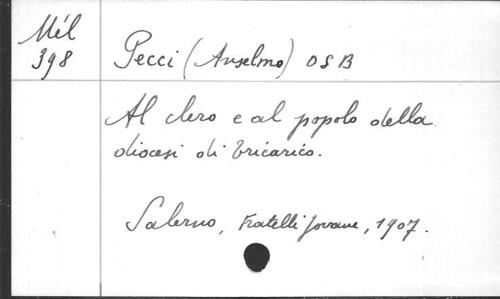 Mél
398
Pecci (Anselmo) OSB
Al clero e al popolo della
diocesi di Tricarico.
Salerno, Fratelli Jovane, 1907.